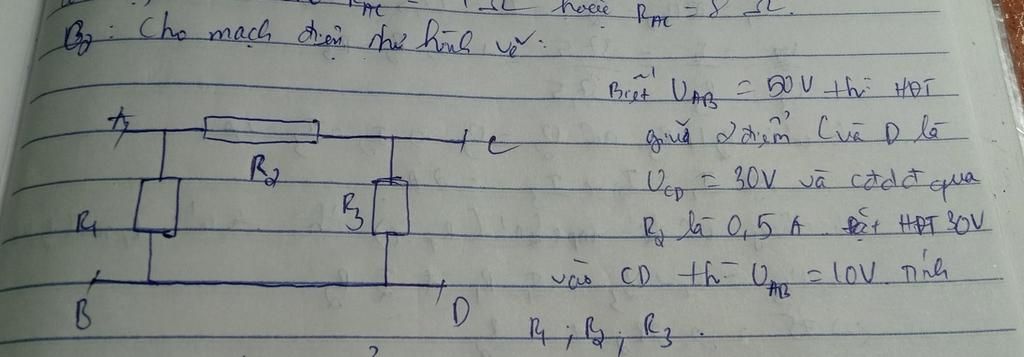 R_AC = 1 Ω hoặc R_AC = 8 Ω.
B2: Cho mạch điện như hình vẽ:
Biết U_AB = 50V thì HĐT
giữa 2 điểm C và D là
U_CD = 30V và cđdđ qua
R2 là 0,5 A. Đặt HĐT 30V
vào CD thì U_AB = 10V Tính
R1 ; R2 ; R3.
A
C
R2
R1
R3
B
D